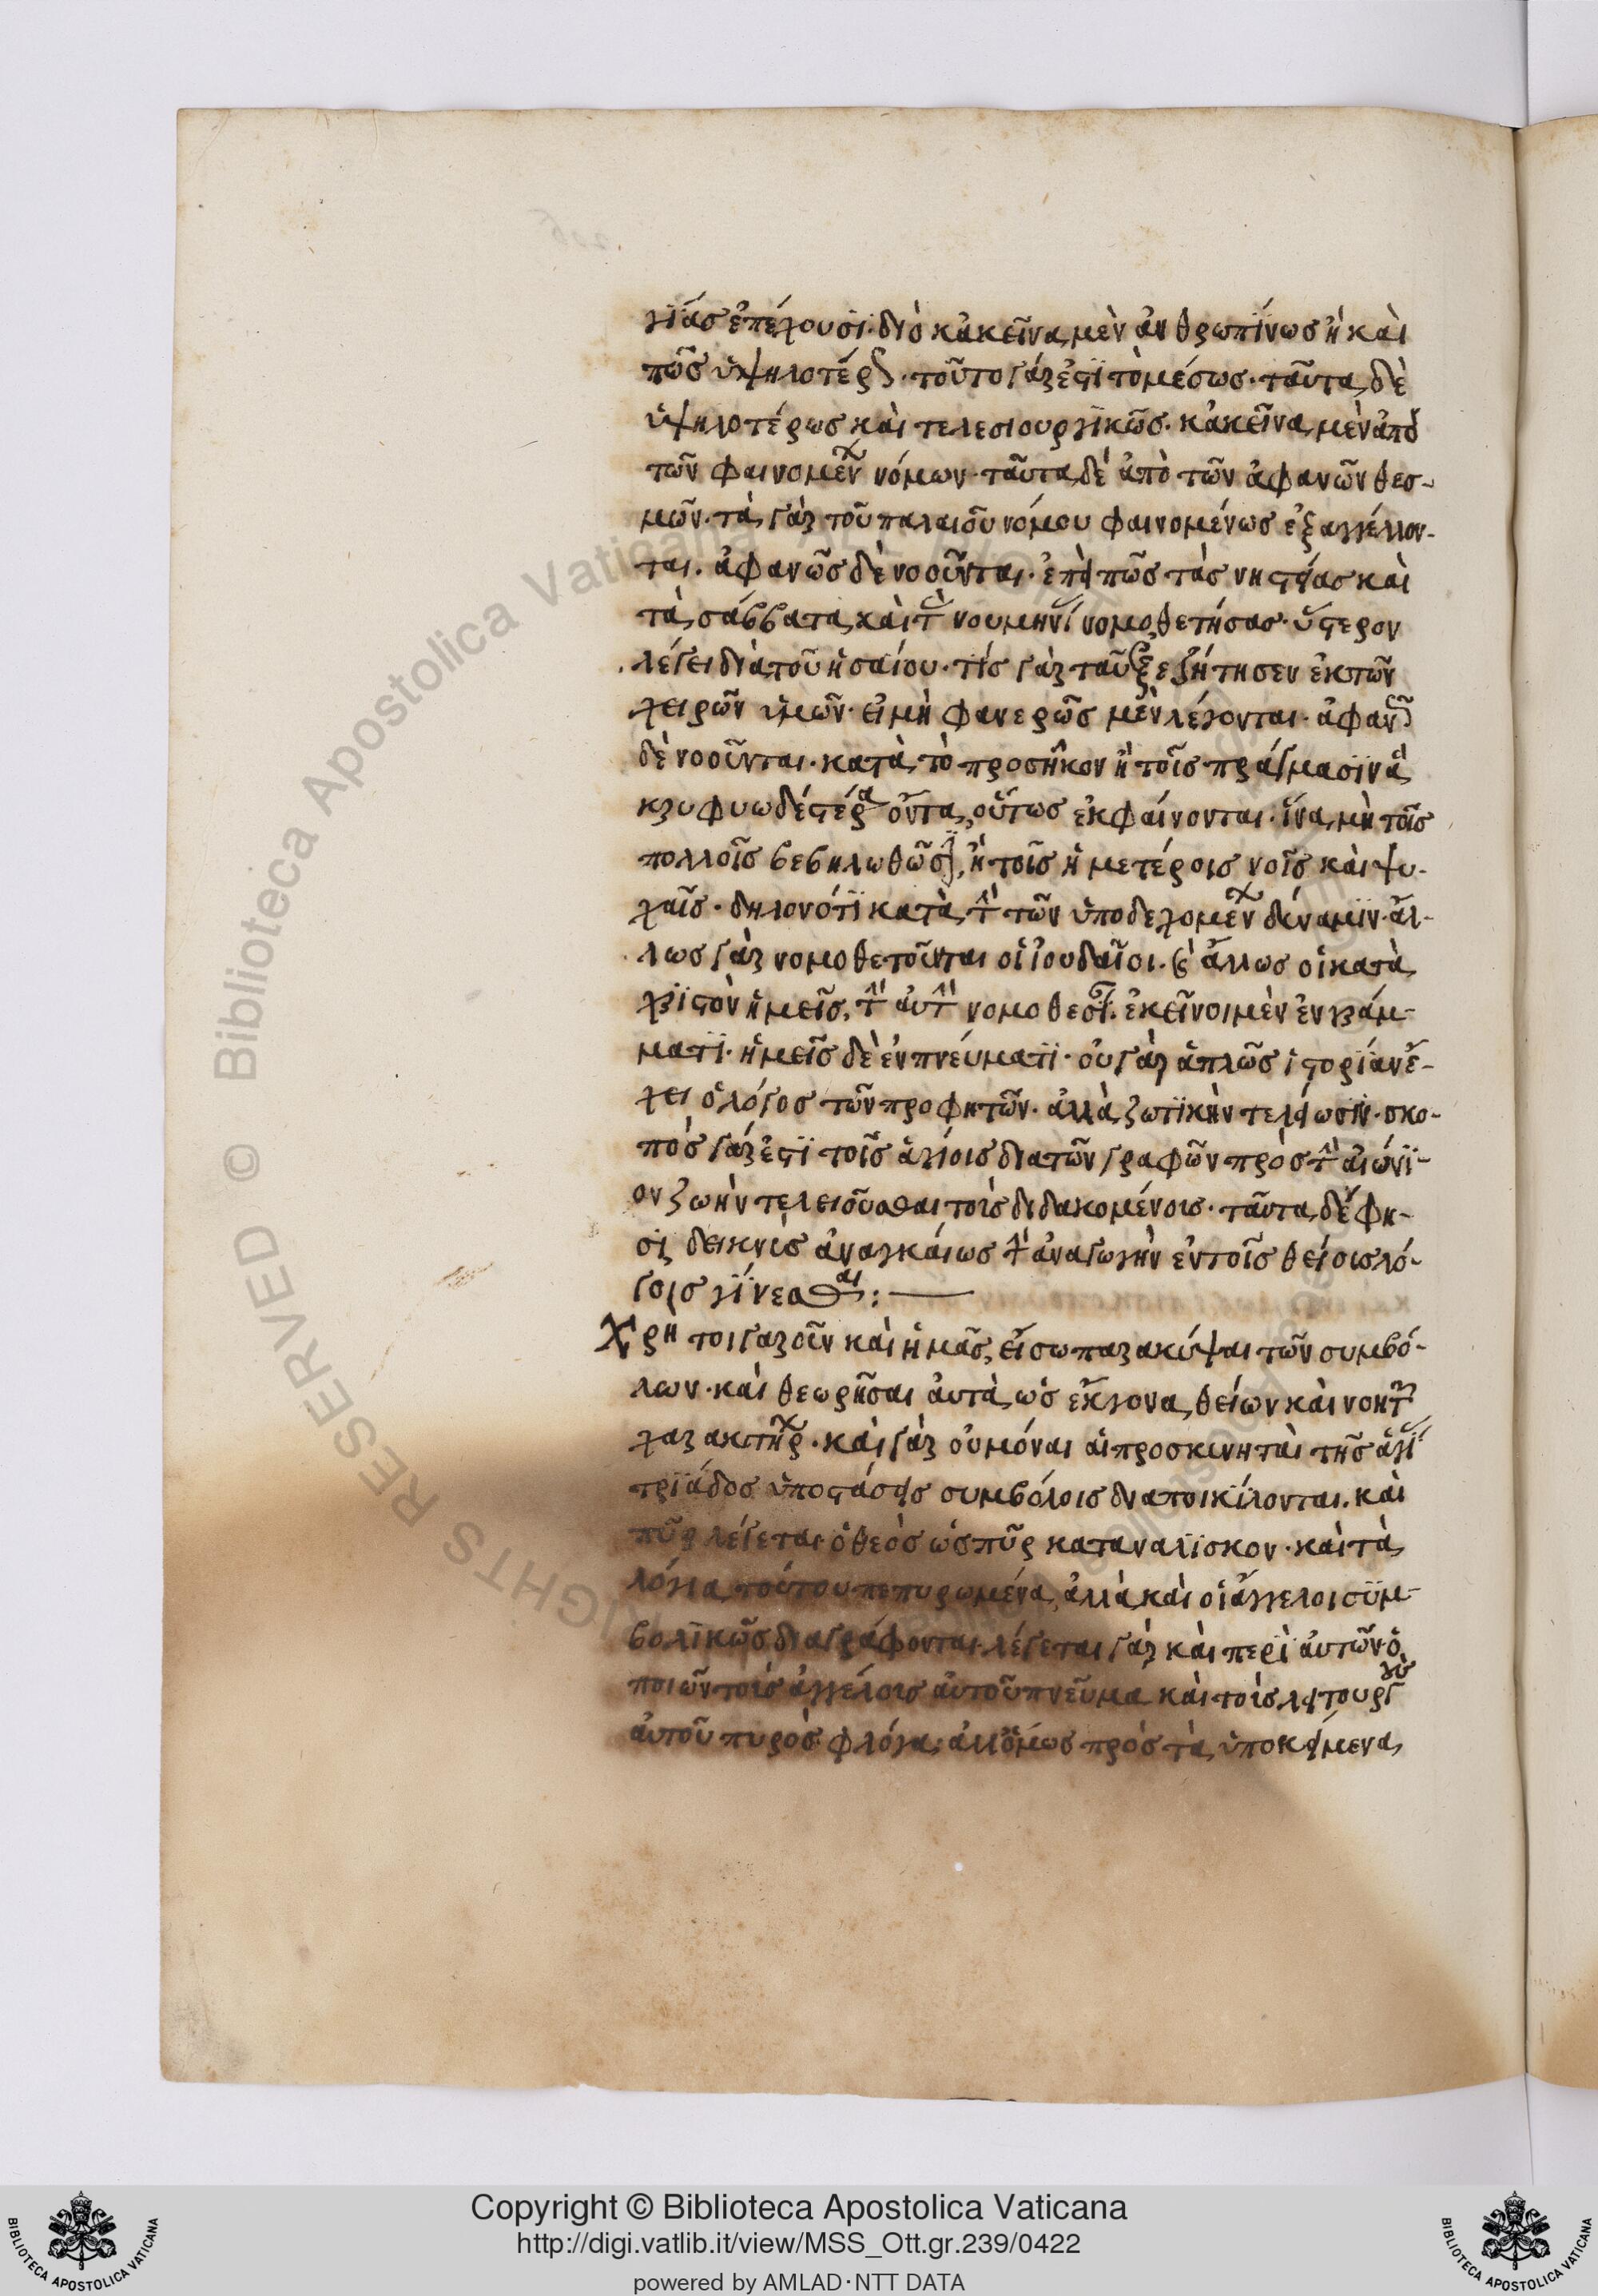 γίας ἐπέχουσι. διὸ κἀκεῖνα μὲν ἀνθρωπίνως ἢ καὶ
πῶς ὑψηλοτέρ. τοῦτο γάρ ἐστι τὸ μέσως. ταῦτα δὲ
ὑψηλοτέρως καὶ τελεσιουργικῶς. κἀκεῖνα μὲν ἀπὸ
τῶν φαινομένων νόμων. ταῦτα δὲ ἀπὸ τῶν ἀφανῶν θεσ-
μῶν. τὰ γὰρ τοῦ παλαιοῦ νόμου φαινομένως ἐξαγγέλλον-
ται. ἀφανῶς δὲ νοοῦνται. ἐπεὶ πῶς τὰς νηστείας καὶ
τὰ σάββατα καὶ τὰς νουμηνί νομοθετήσας. ὕστερον
λέγει διὰ τοῦ ἡσαίου. τίς γὰρ ταῦτα ἐξεζήτησεν ἐκ τῶν
χειρῶν ὑμῶν. εἰ μὴ φανερῶς μὲν λέγονται. ἀφανῶς
δὲ νοοῦνται. κατὰ τὸ προσῆκον ἢ τοῖς πράγμασιν ἃ
κρυφιωδέστερα ὄντα, οὕτως ἐκφαίνονται. ἵνα μὴ τοῖς
πολλοῖς βεβηλωθῶσιν, ἢ τοῖς ἡμετέροις νοῖς καὶ ψυ-
χαῖς. δηλονότι κατὰ τὴν τῶν ὑποδεχομένων δύναμιν. ἄλ-
λως γὰρ νομοθετοῦνται οἱ ἰουδαῖοι. καὶ ἄλλως οἱ κατὰ
χριστὸν ἡμεῖς, τὴν αὐτὴν νομοθεσίαν. ἐκεῖνοι μὲν ἐν γράμ-
ματι. ἡμεῖς δὲ ἐν πνεύματι. οὐ γὰρ ἁπλῶς ἱστορίαν ἔ-
χει ὁ λόγος τῶν προφητῶν. ἀλλὰ ζωτικὴν τελείωσιν. σκο-
πὸς γάρ ἐστι τοῖς ἁγίοις διὰ τῶν γραφῶν πρὸς τὴν αἰώνι-
ον ζωὴν τελειοῦσθαι τοὺς διδασκομένους. ταῦτα δέ φη-
σι, δεικνὺς ἀναγκαίως τὴν ἀναγωγὴν ἐν τοῖς θείοις λό-
γοις γίνεσθαι:
Χρή τοιγαροῦν καὶ ἡμᾶς, εἴσω παρακύψαι τῶν συμβό-
λων. καὶ θεωρῆσαι αὐτὰ ὡς ἔκγονα θείων καὶ νοητῶν
χαρακτήρων. καὶ γὰρ οὐ μόναι αἱ προσκυνηταὶ τῆς ἁγί
τριάδος ὑποστάσεις συμβόλοις διαποικίλονται. καὶ
πῦρ λέγεται ὁ θεὸς ὡς πῦρ καταναλίσκον. καὶ τὰ
λόγια τούτου πεπυρωμένα ἀλλὰ καὶ οἱ ἄγγελοι συμ-
βολικῶς διαγράφονται. λέγεται γὰρ καὶ περὶ αὐτῶν. ὁ
ποιῶν τοὺς ἀγγέλους αὐτοῦ πνεῦμα καὶ τοὺς λειτουργοὺς
αὐτοῦ πυρὸς φλόγα. ἀλλ' ὅμως πρὸς τὰ ὑποκείμενα
Copyright © Biblioteca Apostolica Vaticana
http://digi.vatlib.it/view/MSS_Ott.gr.239/0422
powered by AMLAD·NTT DATA